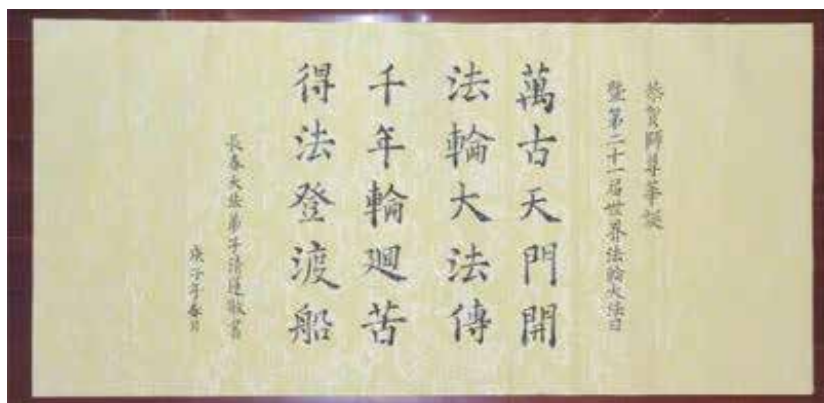 恭賀師尊華誕
暨第二十一屆世界法輪大法日
萬古天門開
法輪大法傳
千年輪廻苦
得法登渡船
長春大法弟子清蓮敬書
庚子年春日